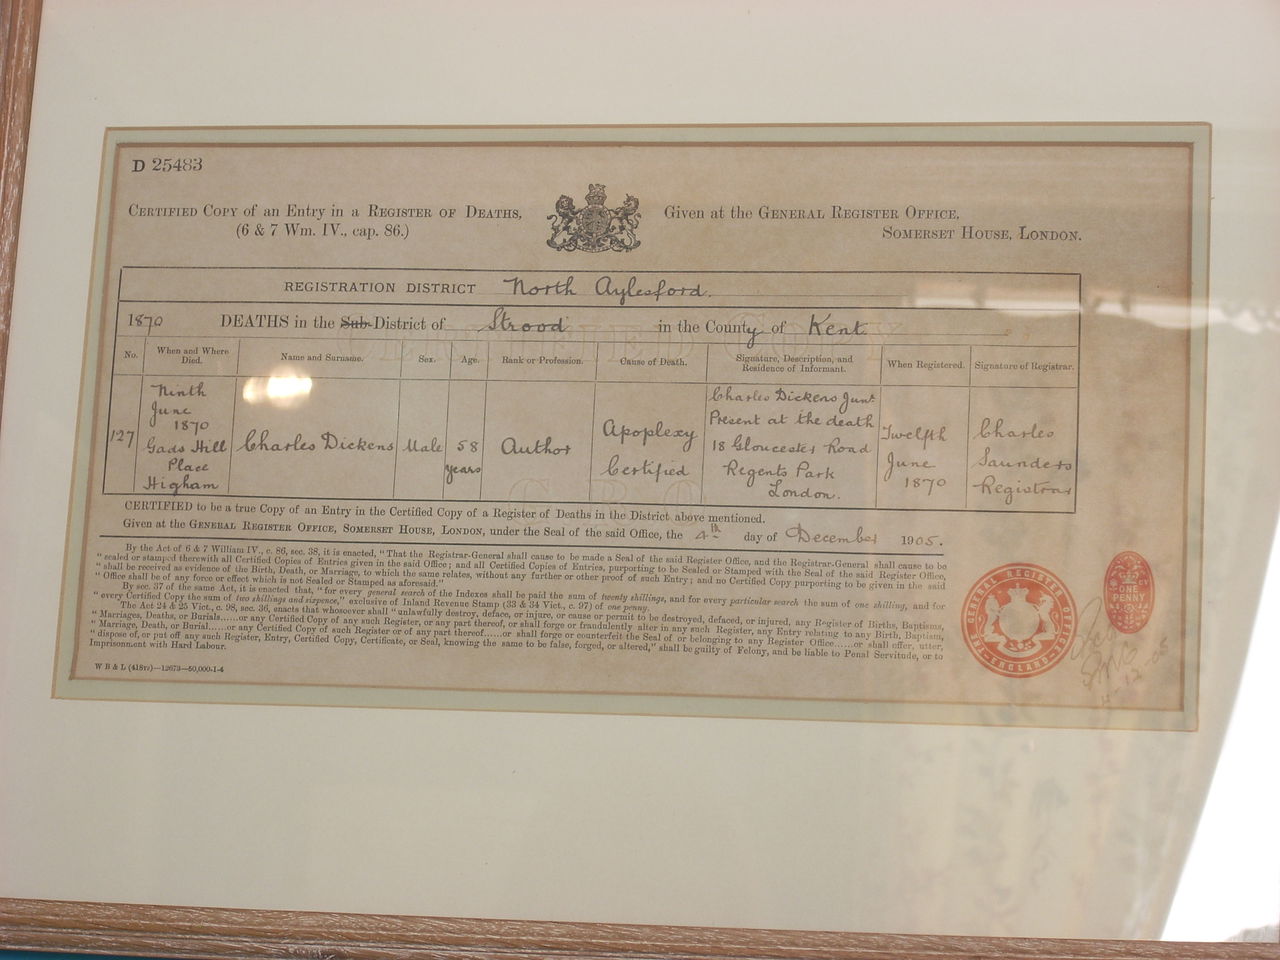 D 25483
CERTIFIED COPY of an Entry in a REGISTER OF DEATHS,
(6 & 7 Wm. IV., cap. 86.)
Given at the GENERAL REGISTER OFFICE,
SOMERSET HOUSE, LONDON.
REGISTRATION DISTRICT North Aylesford.
1870 DEATHS in the Sub-District of Strood in the County of Kent
No. When and Where Died. Name and Surname. Sex. Age. Rank or Profession. Cause of Death. Signature, Description, and Residence of Informant. When Registered. Signature of Registrar.
127
Ninth
June
1870
Gads Hill
Place
Higham
Charles Dickens
Male
58
years
Author
Apoplexy
Certified
Charles Dickens Junr
Present at the death
18 Gloucester Road
Regents Park
London.
Twelfth
June
1870
Charles
Saunders
Registrar
CERTIFIED to be a true Copy of an Entry in the Certified Copy of a Register of Deaths in the District above mentioned.
Given at the GENERAL REGISTER OFFICE, SOMERSET HOUSE, LONDON, under the Seal of the said Office, the 4th day of December 1905.
By the Act of 6 & 7 William IV., c. 86, sec. 38, it is enacted, "That the Registrar-General shall cause to be made a Seal of the said Register Office, and the Registrar-General shall cause to be
"sealed or stamped therewith all Certified Copies of Entries given in the said Office; and all Certified Copies of Entries, purporting to be Sealed or Stamped with the Seal of the said Register Office,
"shall be received as evidence of the Birth, Death, or Marriage, to which the same relates, without any further or other proof of such Entry; and no Certified Copy purporting to be given in the said
"Office shall be of any force or effect which is not Sealed or Stamped as aforesaid."
By sec. 37 of the same Act, it is enacted that, "for every general search of the Indexes shall be paid the sum of twenty shillings, and for every particular search the sum of one shilling, and for
"every Certified Copy the sum of two shillings and sixpence," exclusive of Inland Revenue Stamp (33 & 34 Vict., c. 97) of one penny.
The Act 24 & 25 Vict., c. 98, sec. 36, enacts that whosoever shall "unlawfully destroy, deface, or injure, or cause or permit to be destroyed, defaced, or injured, any Register of Births, Baptisms,
"Marriages, Deaths, or Burials......or any Certified Copy of any such Register, or any part thereof, or shall forge or fraudulently alter in any such Register, any Entry relating to any Birth, Baptism,
"Marriage, Death, or Burial......or any Certified Copy of such Register or of any part thereof......or shall forge or counterfeit the Seal of or belonging to any Register Office......or shall offer, utter,
"dispose of, or put off any such Register, Entry, Certified Copy, Certificate, or Seal, knowing the same to be false, forged, or altered," shall be guilty of Felony, and be liable to Penal Servitude, or to
Imprisonment with Hard Labour.
GENERAL REGISTER OFFICE
THE ENGLAND
ONE
PENNY
4-12-05